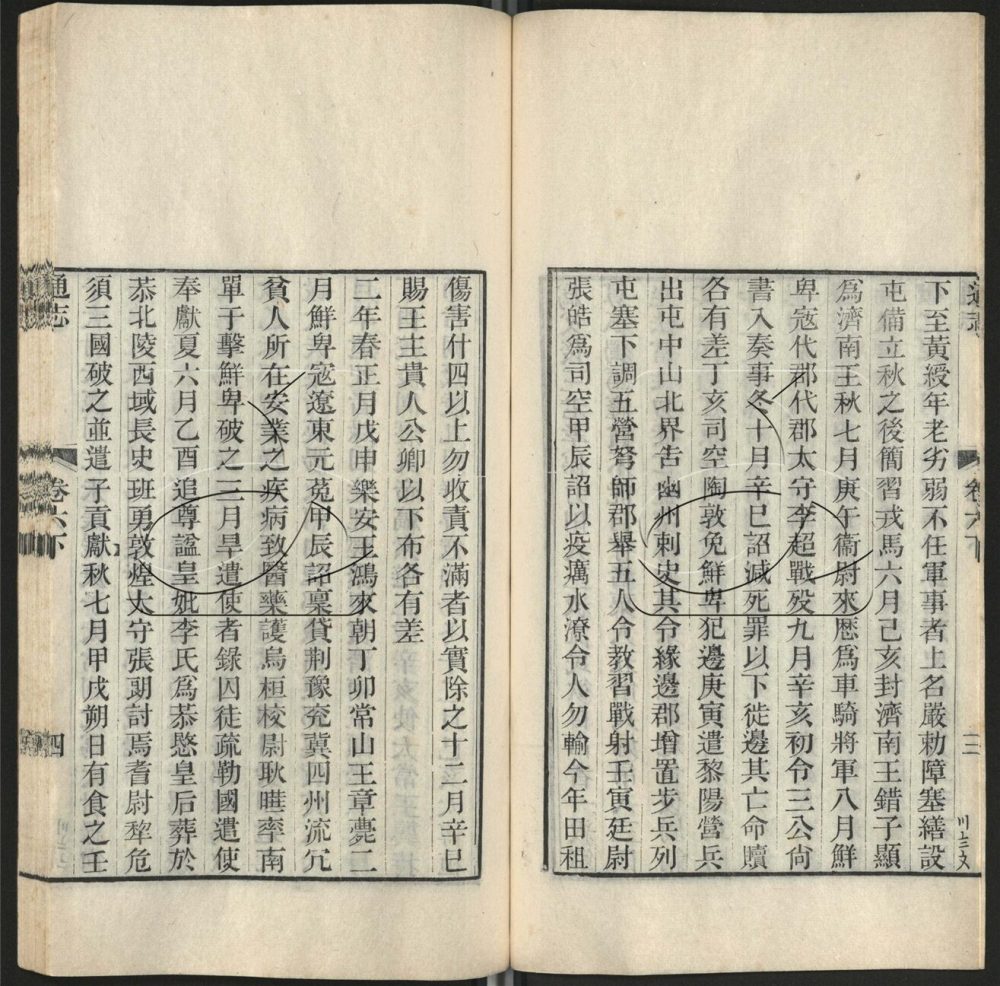 通志
卷六下
三
下至黃綬年老劣弱不任軍事者上名嚴勅障塞繕設
屯備立秋之後簡習戎馬六月己亥封濟南王錯子顯
爲濟南王秋七月庚午衞尉來歷爲車騎將軍八月鮮
卑寇代郡代郡太守李超戰歿九月辛亥初令三公尙
書入奏事冬十月辛巳詔減死罪以下徙邊其亡命贖
各有差丁亥司空陶敦免鮮卑犯邊庚寅遣黎陽營兵
出屯中山北界告幽州刺史其令緣邊郡增置步兵列
屯塞下調五營弩師郡舉五人令教習戰射壬寅廷尉
張皓爲司空甲辰詔以疫癘水潦令人勿輸今年田租
傷害什四以上勿收責不滿者以實除之十二月辛巳
賜王主貴人公卿以下布各有差
二年春正月戊申樂安王鴻來朝丁卯常山王章薨二
月鮮卑寇遼東元菟甲辰詔稟貸荆豫兗冀四州流冗
貧人所在安業之疾病致醫藥護烏桓校尉耿曄率南
單于擊鮮卑破之三月旱遣使者錄囚徒疏勒國遣使
奉獻夏六月乙酉追尊諡皇妣李氏爲恭愍皇后葬於
恭北陵西域長史班勇敦煌太守張朗討焉耆尉犂危
須三國破之並遣子貢獻秋七月甲戌朔日有食之壬
通志
卷六下
四